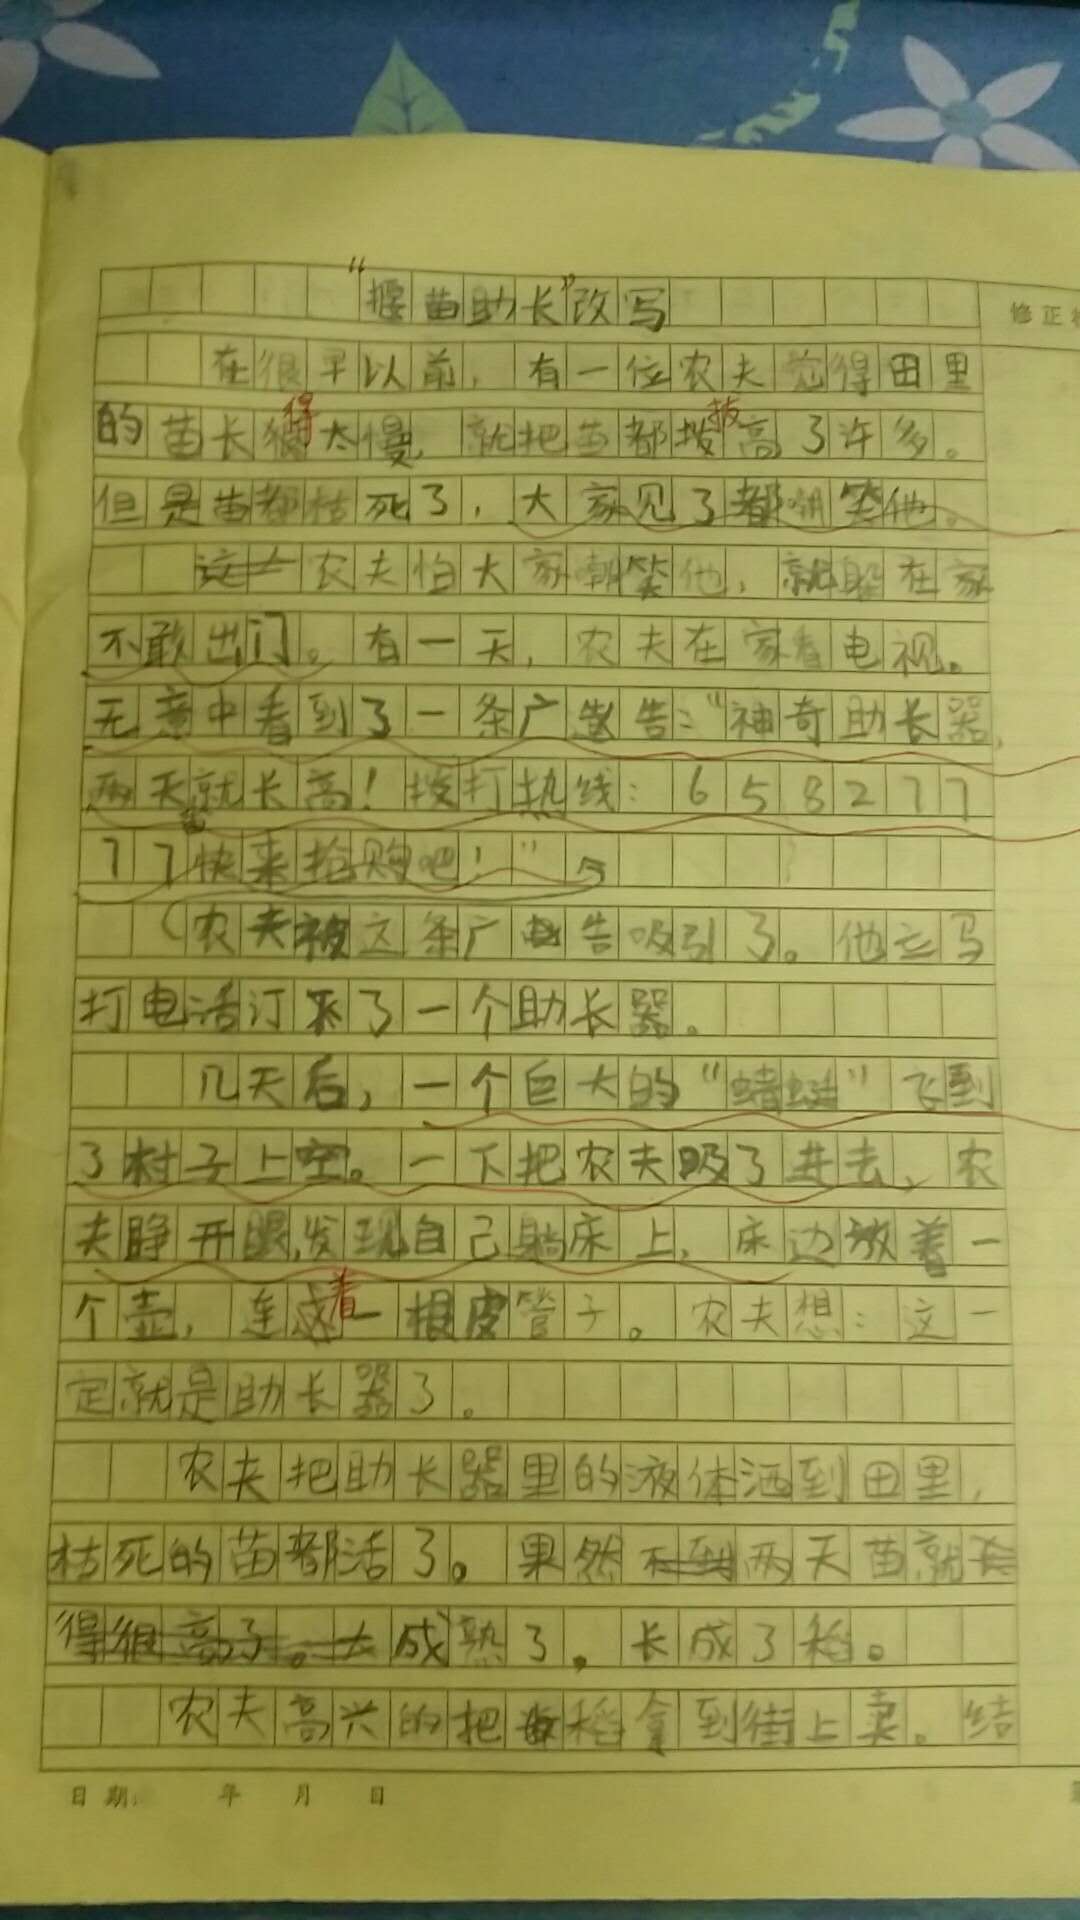 “揠苗助长”改写
修正栏
在很早以前，有一位农夫觉得田里
的苗长得太慢，就把苗都拔高了许多。
但是苗都枯死了，大家见了都嘲笑他。
农夫怕大家嘲笑他，就躲在家
不敢出门。有一天，农夫在家看电视。
无意中看到了一条广告：“神奇助长器，
两天就长高！拨打热线：658277
77快来抢购吧！”
农夫被这条广告吸引了。他立马
打电话订了一个助长器。
几天后，一个巨大的“蜻蜓”飞到
了村子上空。一下把农夫吸了进去，农
夫睁开眼，发现自己躺床上，床边放着一
个壶，连着一根皮管子。农夫想：这一
定就是助长器了。
农夫把助长器里的液体洒到田里，
枯死的苗都活了。果然两天苗就
成熟了。长成了稻。
农夫高兴的把稻拿到街上卖。结
日期： 年 月 日